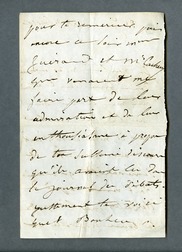 pour te remercier, puis
encore ce soir mon
qui venaient me
faire part de leur
admiration et de leur
enthousiasme à propos
de ton discours
qu'ils avaient lu dans
le journal des débats,
justement le voici
quel Bonheur